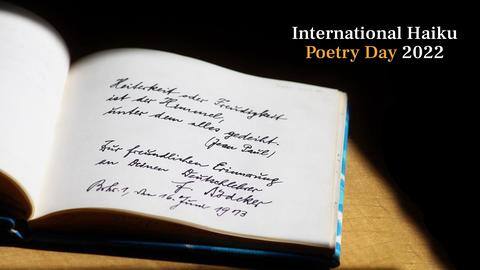 International Haiku
Poetry Day 2022
Heiterkeit oder Freudigkeit
ist der Himmel,
unter dem alles gedeiht.
(Jean Paul)
Zur freundlichen Erinnerung
an Deinen Deutschlehrer
den 16. Juni 1973